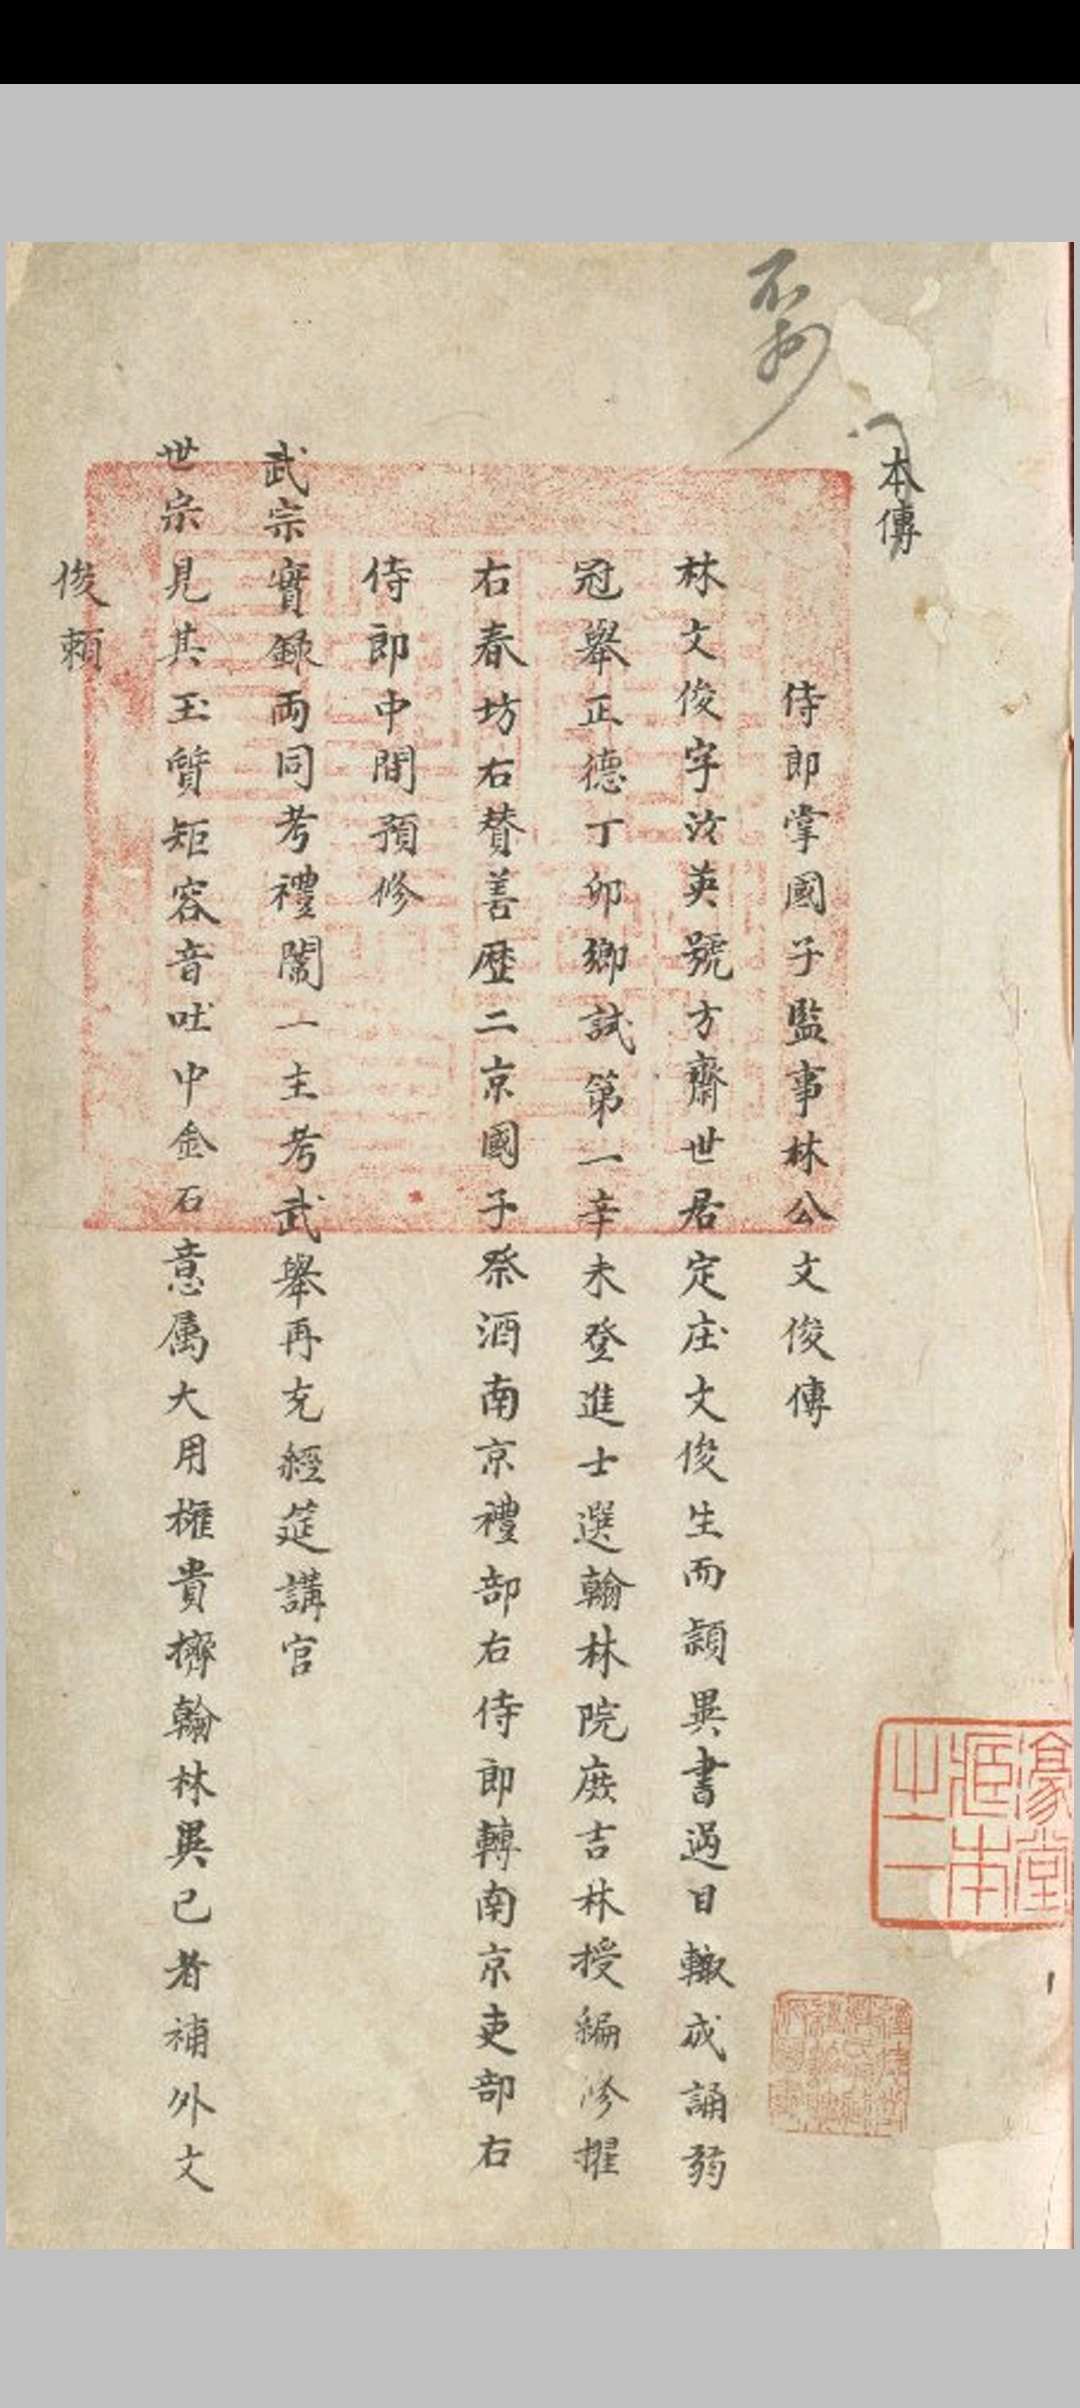 不抄
本傳
侍郎掌國子監事林公文俊傳
林文俊字汝英號方齋世居定庄文俊生而穎異書過目輙成誦弱
冠舉正德丁卯鄉試第一辛未登進士選翰林院庶吉林授編修擢
右春坊右賛善歷二京國子祭酒南京禮部右侍郎轉南京吏部右
侍郎中間預修
武宗實録両同考禮闈一主考武舉再充經筵講官
世宗見其玉質矩容音吐中金石意属大用權貴擠翰林異己者補外文
俊頼
濠堂
藏本
之一